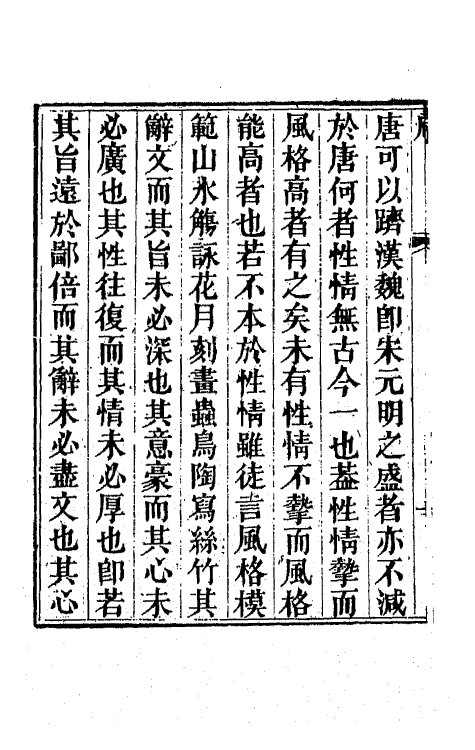 唐可以躋漢魏卽宋元明之盛者亦不減
於唐何者性情無古今一也葢性情摯而
風格高者有之矣未有性情不摯而風格
能高者也若不本於性情雖徒言風格模
範山水觴詠花月刻畫蟲鳥陶寫絲竹其
辭文而其旨未必深也其意豪而其心未
必廣也其性往復而其情未必厚也卽若
其旨遠於鄙倍而其辭未必盡文也其心